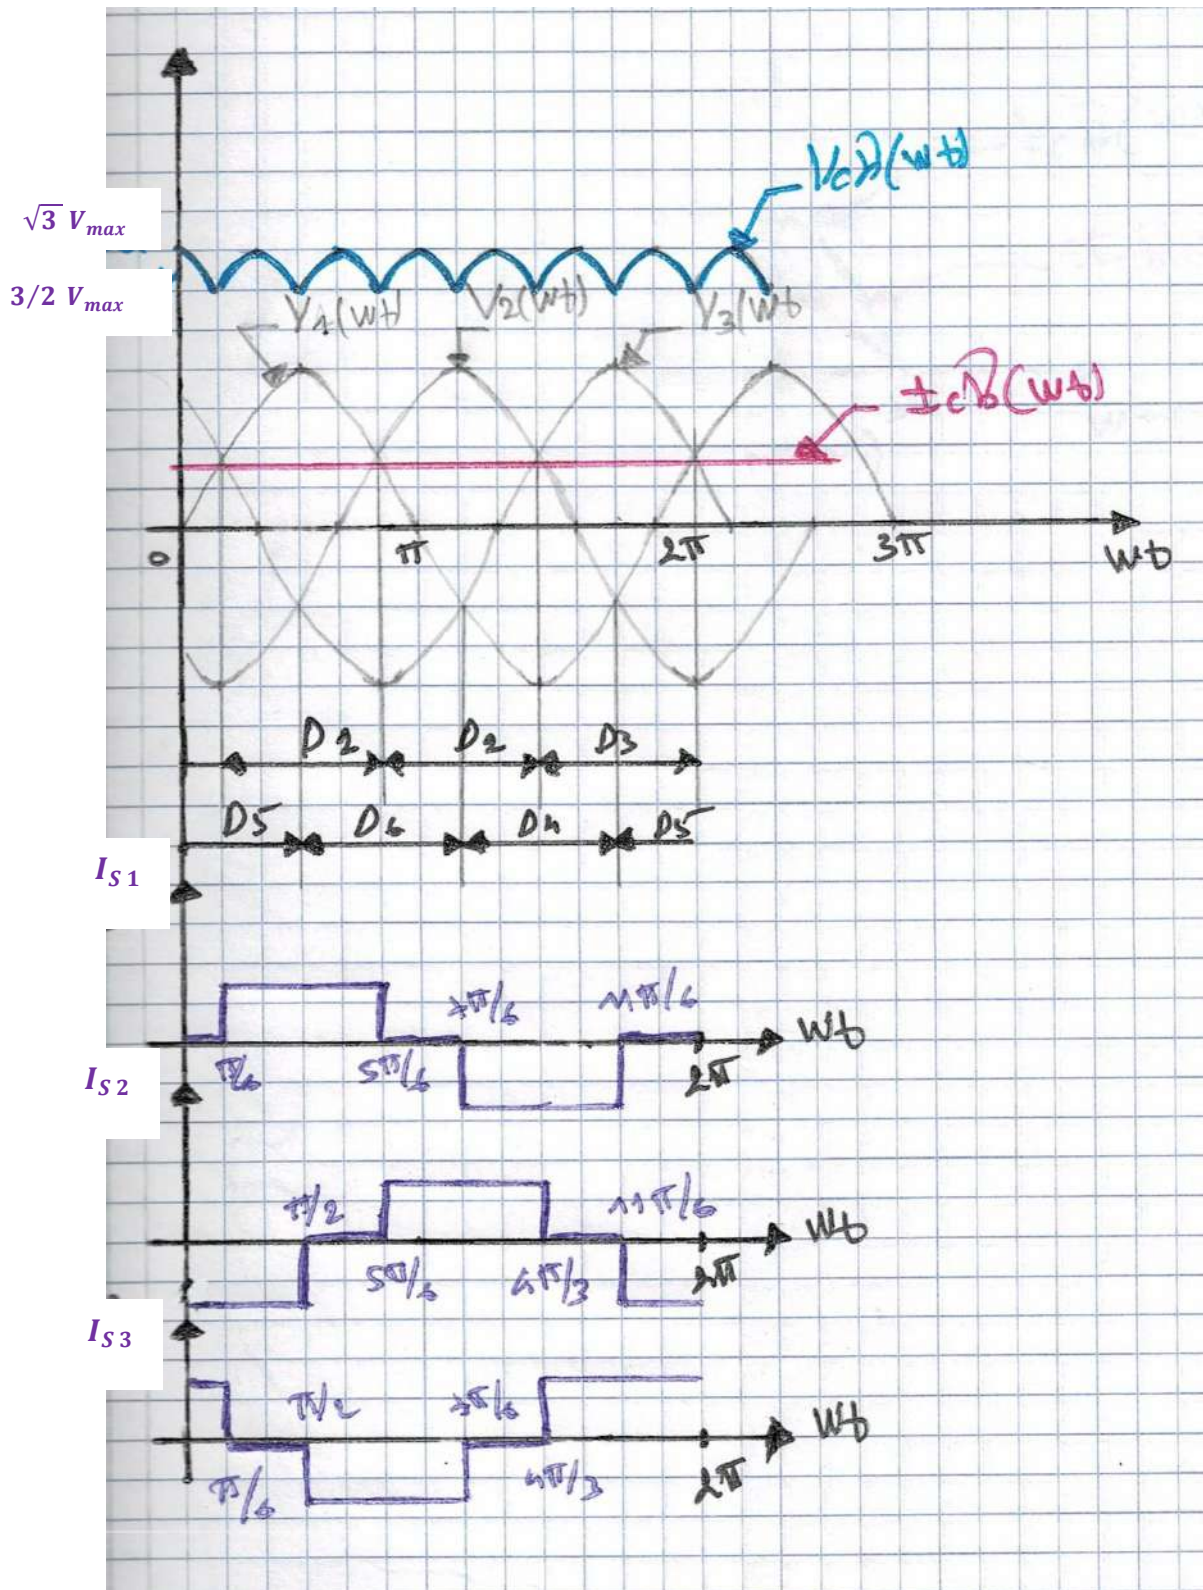 VcD(wt)
√3 V_max
3/2 V_max
V1(wt) V2(wt) V3(wt
IcD(wt)
0 π 2π 3π
wt
D1 D2 D3
D5 D6 D4 D5
I_S1
7π/6 11π/6 wt
π/6 5π/6 2π
I_S2
π/2 11π/6 wt
5π/6 4π/3 2π
I_S3
π/2 7π/6 wt
π/6 4π/3 2π